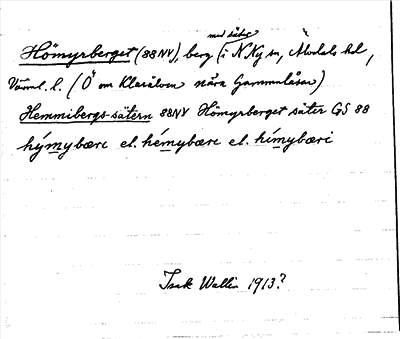 med säter
Hömyrberget (88NV), berg (i N Ny sn, Älvdals hd,
Värml. l. (Ö om Klarälven nära Gammalåsar)
Hemmibergs-sätern 88NV Hömyrberget säter GS 88
hýmybæri el. hémybæri el. hímybæri
Isak Wallin 1913?